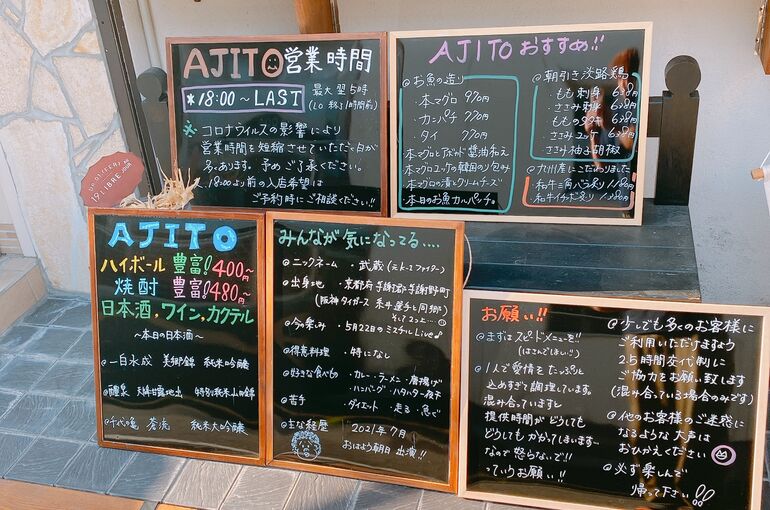 AJITO 営業時間
*18:00～LAST
最大 翌5時
コロナウイルスの影響により
営業時間を短縮させていただく日が
多々あります。予めご了承ください。
又、18:00より前の入店希望は
ご予約時にご相談ください!!
AJITO おすすめ!!
◎お魚の造り
・本マグロ 970円
・カンパチ 770円
・タイ 770円
本マグロとアボカド醤油和え
本マグロユッケ韓国のり包み
本マグロの漬とクリームチーズ
本日のお魚カルパッチョ
◎朝引き淡路鶏
・もも刺身 638円
・ささみ刺身 638円
・もものタタキ 638円
・ささみユッケ 638円
・ささみ柚子胡椒
◎九州産にこだわりました
・和牛三角バラ炙り 1180円
・和牛イチボ炙り 1380円
19. LIBRE
AJITO
ハイボール 豊富! 400円～
焼酎 豊富! 480円～
日本酒,ワイン,カクテル
～本日の日本酒～
◎一白水成 美郷錦 純米吟醸
◎千代の亀 蒼流 純米大吟醸
みんなが気になってる....
◎ニックネーム ・武蔵(元k-1ファイター)
◎出身地 ・京都府与謝郡与謝野町
(阪神タイガース 糸井選手と同郷)
◎今の楽しみ ・5月22日のミスチルLive♪
◎得意料理 ・特になし
◎好きな食べもの ・カレー・ラーメン・唐揚げ
・ハンバーグ・ハタハタ一夜干
◎苦手 ・ダイエット ・走る ・魚で
◎主な経歴 2021年7月
おはよう朝日 出演!!
お願い!!
◎まずはスピードメニューを!!
◎1人で愛情をたっぷりと
込めすぎて調理しています。
混み合っていますと
提供時間がどうしても
どうしてもかかってしまいます…
なので怒らないで!!
っていうお願い!!
◎少しでも多くのお客様に
ご利用いただけますよう
2.5時間交代制に
ご協力をお願い致します
(混み合っている場合のみです)
◎他のお客様のご迷惑に
なるような大声は
おひかえください
◎必ず楽しんで
帰って下さい!!